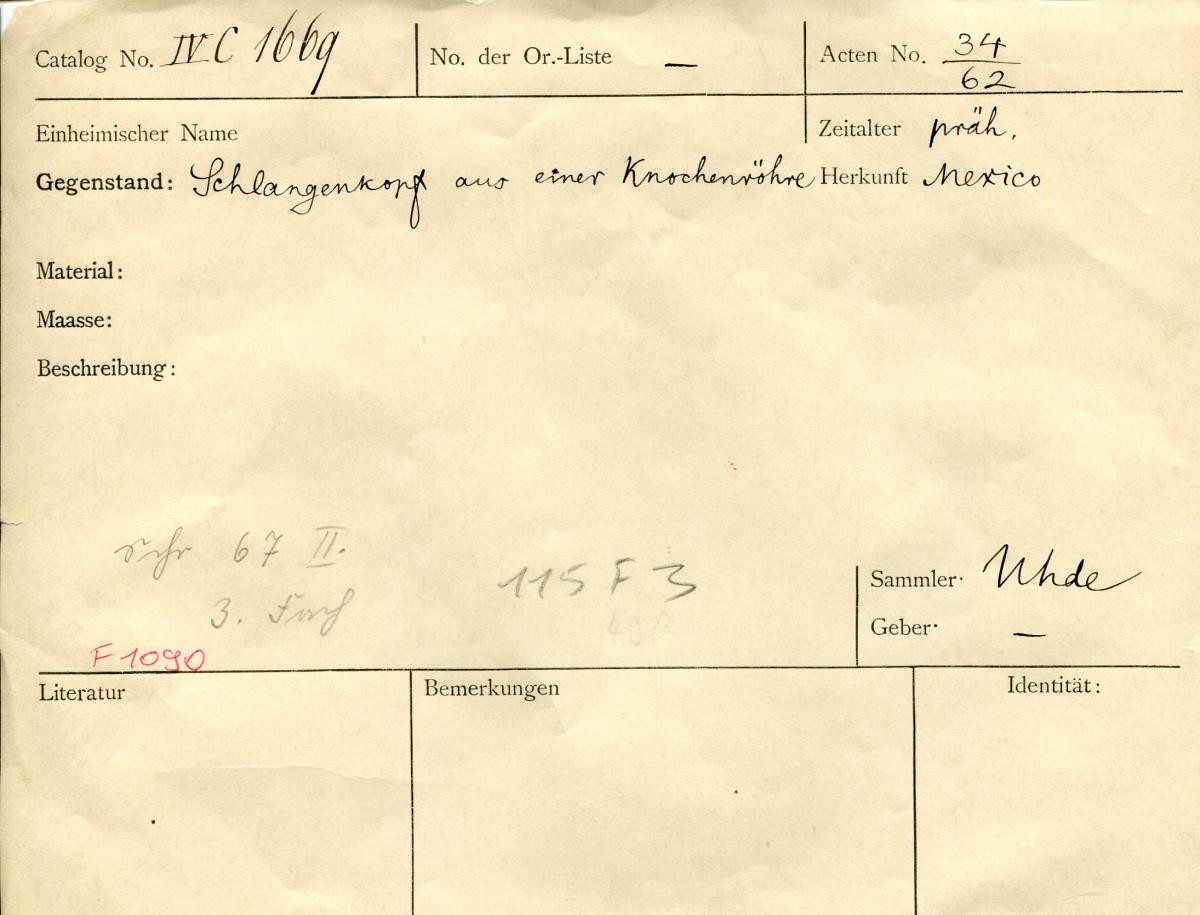 Catalog No. IV C 1669 No. der Or.-Liste — Acten No. 34/62
Einheimischer Name Zeitalter präh.
Gegenstand: Schlangenkopf aus einer Knochenröhre Herkunft Mexico
Material:
Maasse:
Beschreibung:
Schr 67 II.
115 F 3
Sammler· Uhde
3. Fach
Geber· —
F 1090
Literatur Bemerkungen Identität: